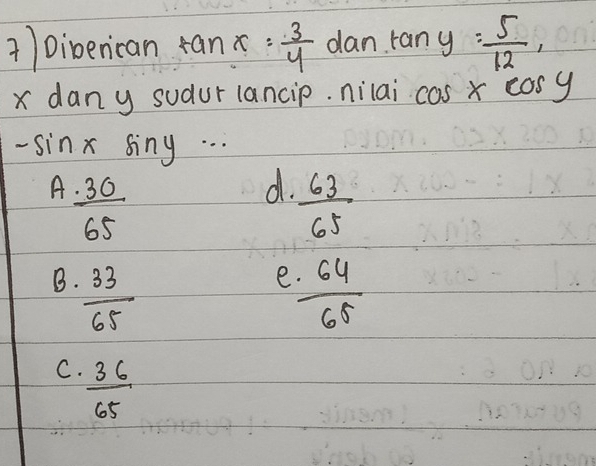 7) Diberikan tan x = 3/4 dan tan y = 5/12,
x dan y sudut lancip. nilai cos x cos y
- sin x sin y ...
A. 30/65 d. 63/65
B. 33/65 e. 64/65
C. 36/65